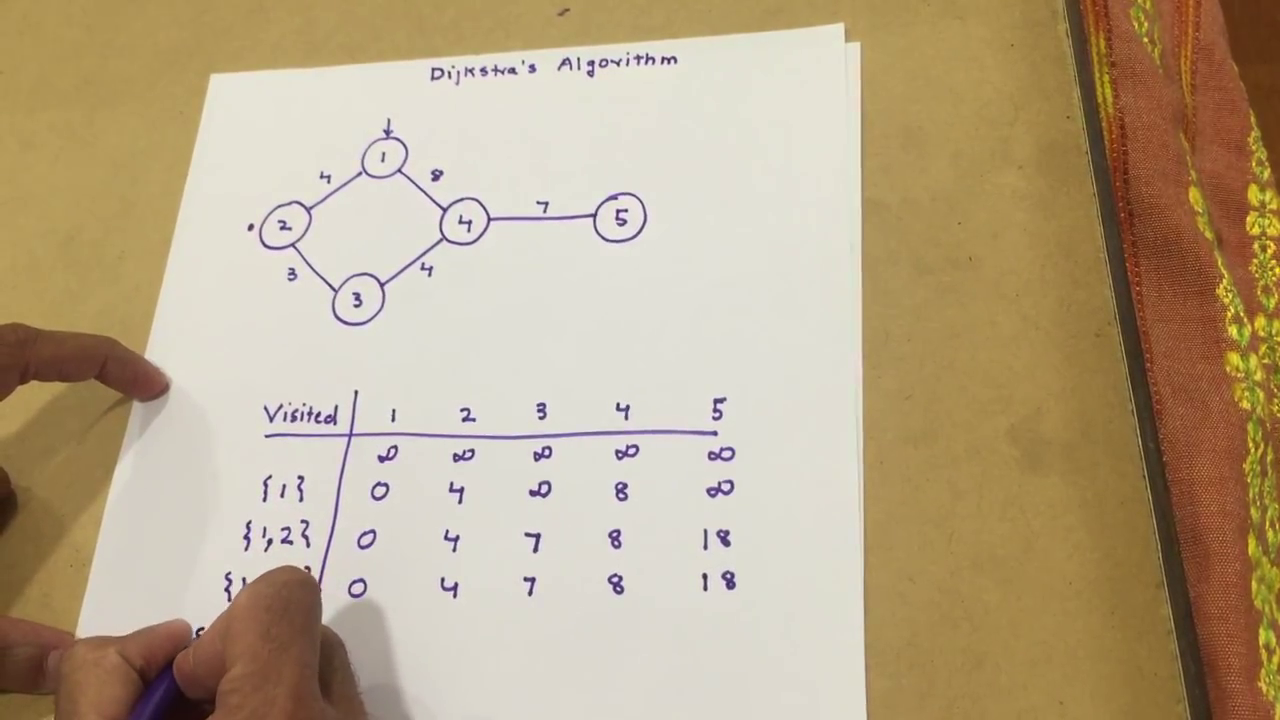 Dijkstra's Algorithm
1
4 8
2 4 7 5
3 4
3
Visited 1 2 3 4 5
∞ ∞ ∞ ∞ ∞
{1} 0 4 ∞ 8 ∞
{1,2} 0 4 7 8 18
{1 0 4 7 8 18